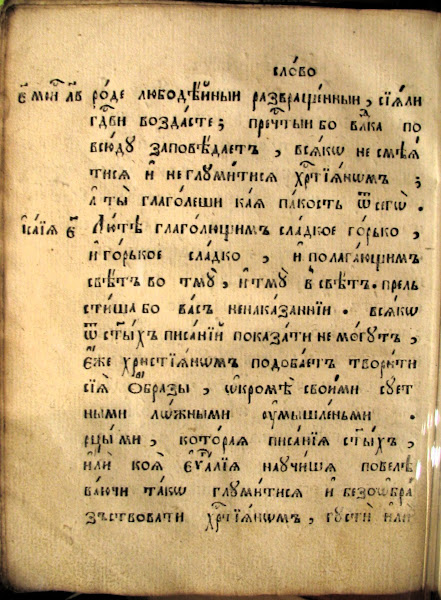 сло́во
Е҃ мои́ л҃в ро́де любодѣ́йныи развраще́нныи, сїѧ́ли
гд҇ви воздасте; пречⷭ҇тыи бо влⷣка по
всю́ду заповѣ́даетъ, всѧ́кѡ не смеѧ́
тисѧ и҆ не глуми́тисѧ хрⷭ҇тїѧ́нѡмъ;
А҆ ты̀ глаго́леши каѧ па́кость ѿ сегѡ̀.
и҆са́їѧ е҃ Лю́тѣ глаго́лющимъ сла́дкое го́рько,
и҆ го́рькое сла́дко, и҆ полага́ющимъ
свѣ́тъ во тмꙋ̀, и҆ тмꙋ̀ в̾ свѣ́тъ. прель
сти́ша бо ва́съ ненака́заннїи. всѧ́кѡ
ѿ ст҃ы́хъ писа́нїй показа́ти не мо́гутъ,
є҆́же христїѧ́нѡмъ подоба́етъ твори́ти
сїѧ̀ ѻ҆́бразы, ѡ҆кромѣ̀ свои́ми сует
ными ло́жными ᲂу҆мышле́ньми.
рцы́ ми, кото́раѧ писа́нїѧ ст҃ы́хъ,
и҆лѝ коѧ̀ є҆ѵⷢ҇а́лїѧ научи́шѧ повелѣ
ва́ючи та́кѡ глуми́тисѧ и҆ безѡ҆бра́
зьствовати хрⷭ҇тїѧ́нѡмъ, гу́сти и҆лѝ